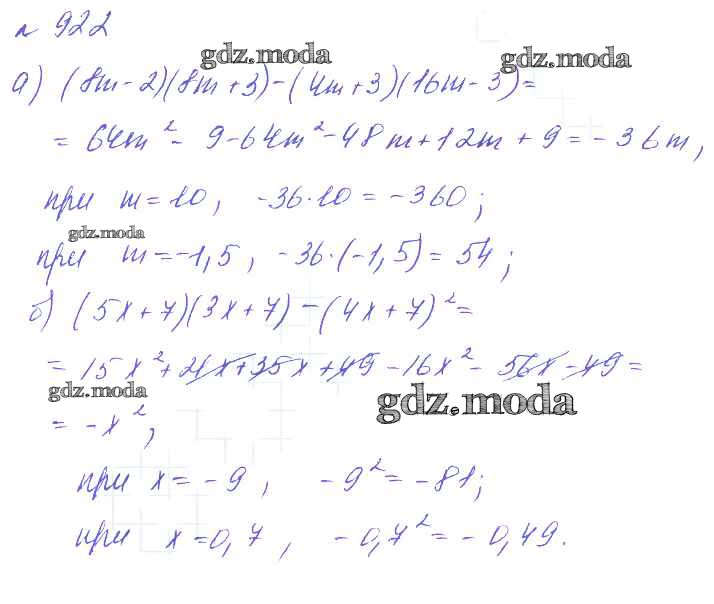 № 922
gdz.moda gdz.moda
а) (8m-2)(8m+3)-(4m+3)(16m-3)=
= 64m² - 9-64m²-48m+12m+9=-36m,
при m=10, -36·10=-360;
gdz.moda
при m=-1,5, -36·(-1,5)=54;
б) (5x+7)(3x+7)-(4x+7)²=
= 15x²+21x+35x+49-16x²-56x-49=
gdz.moda gdz.moda
= -x²;
при x=-9, -9²=-81;
при x=0,7, -0,7²=-0,49.